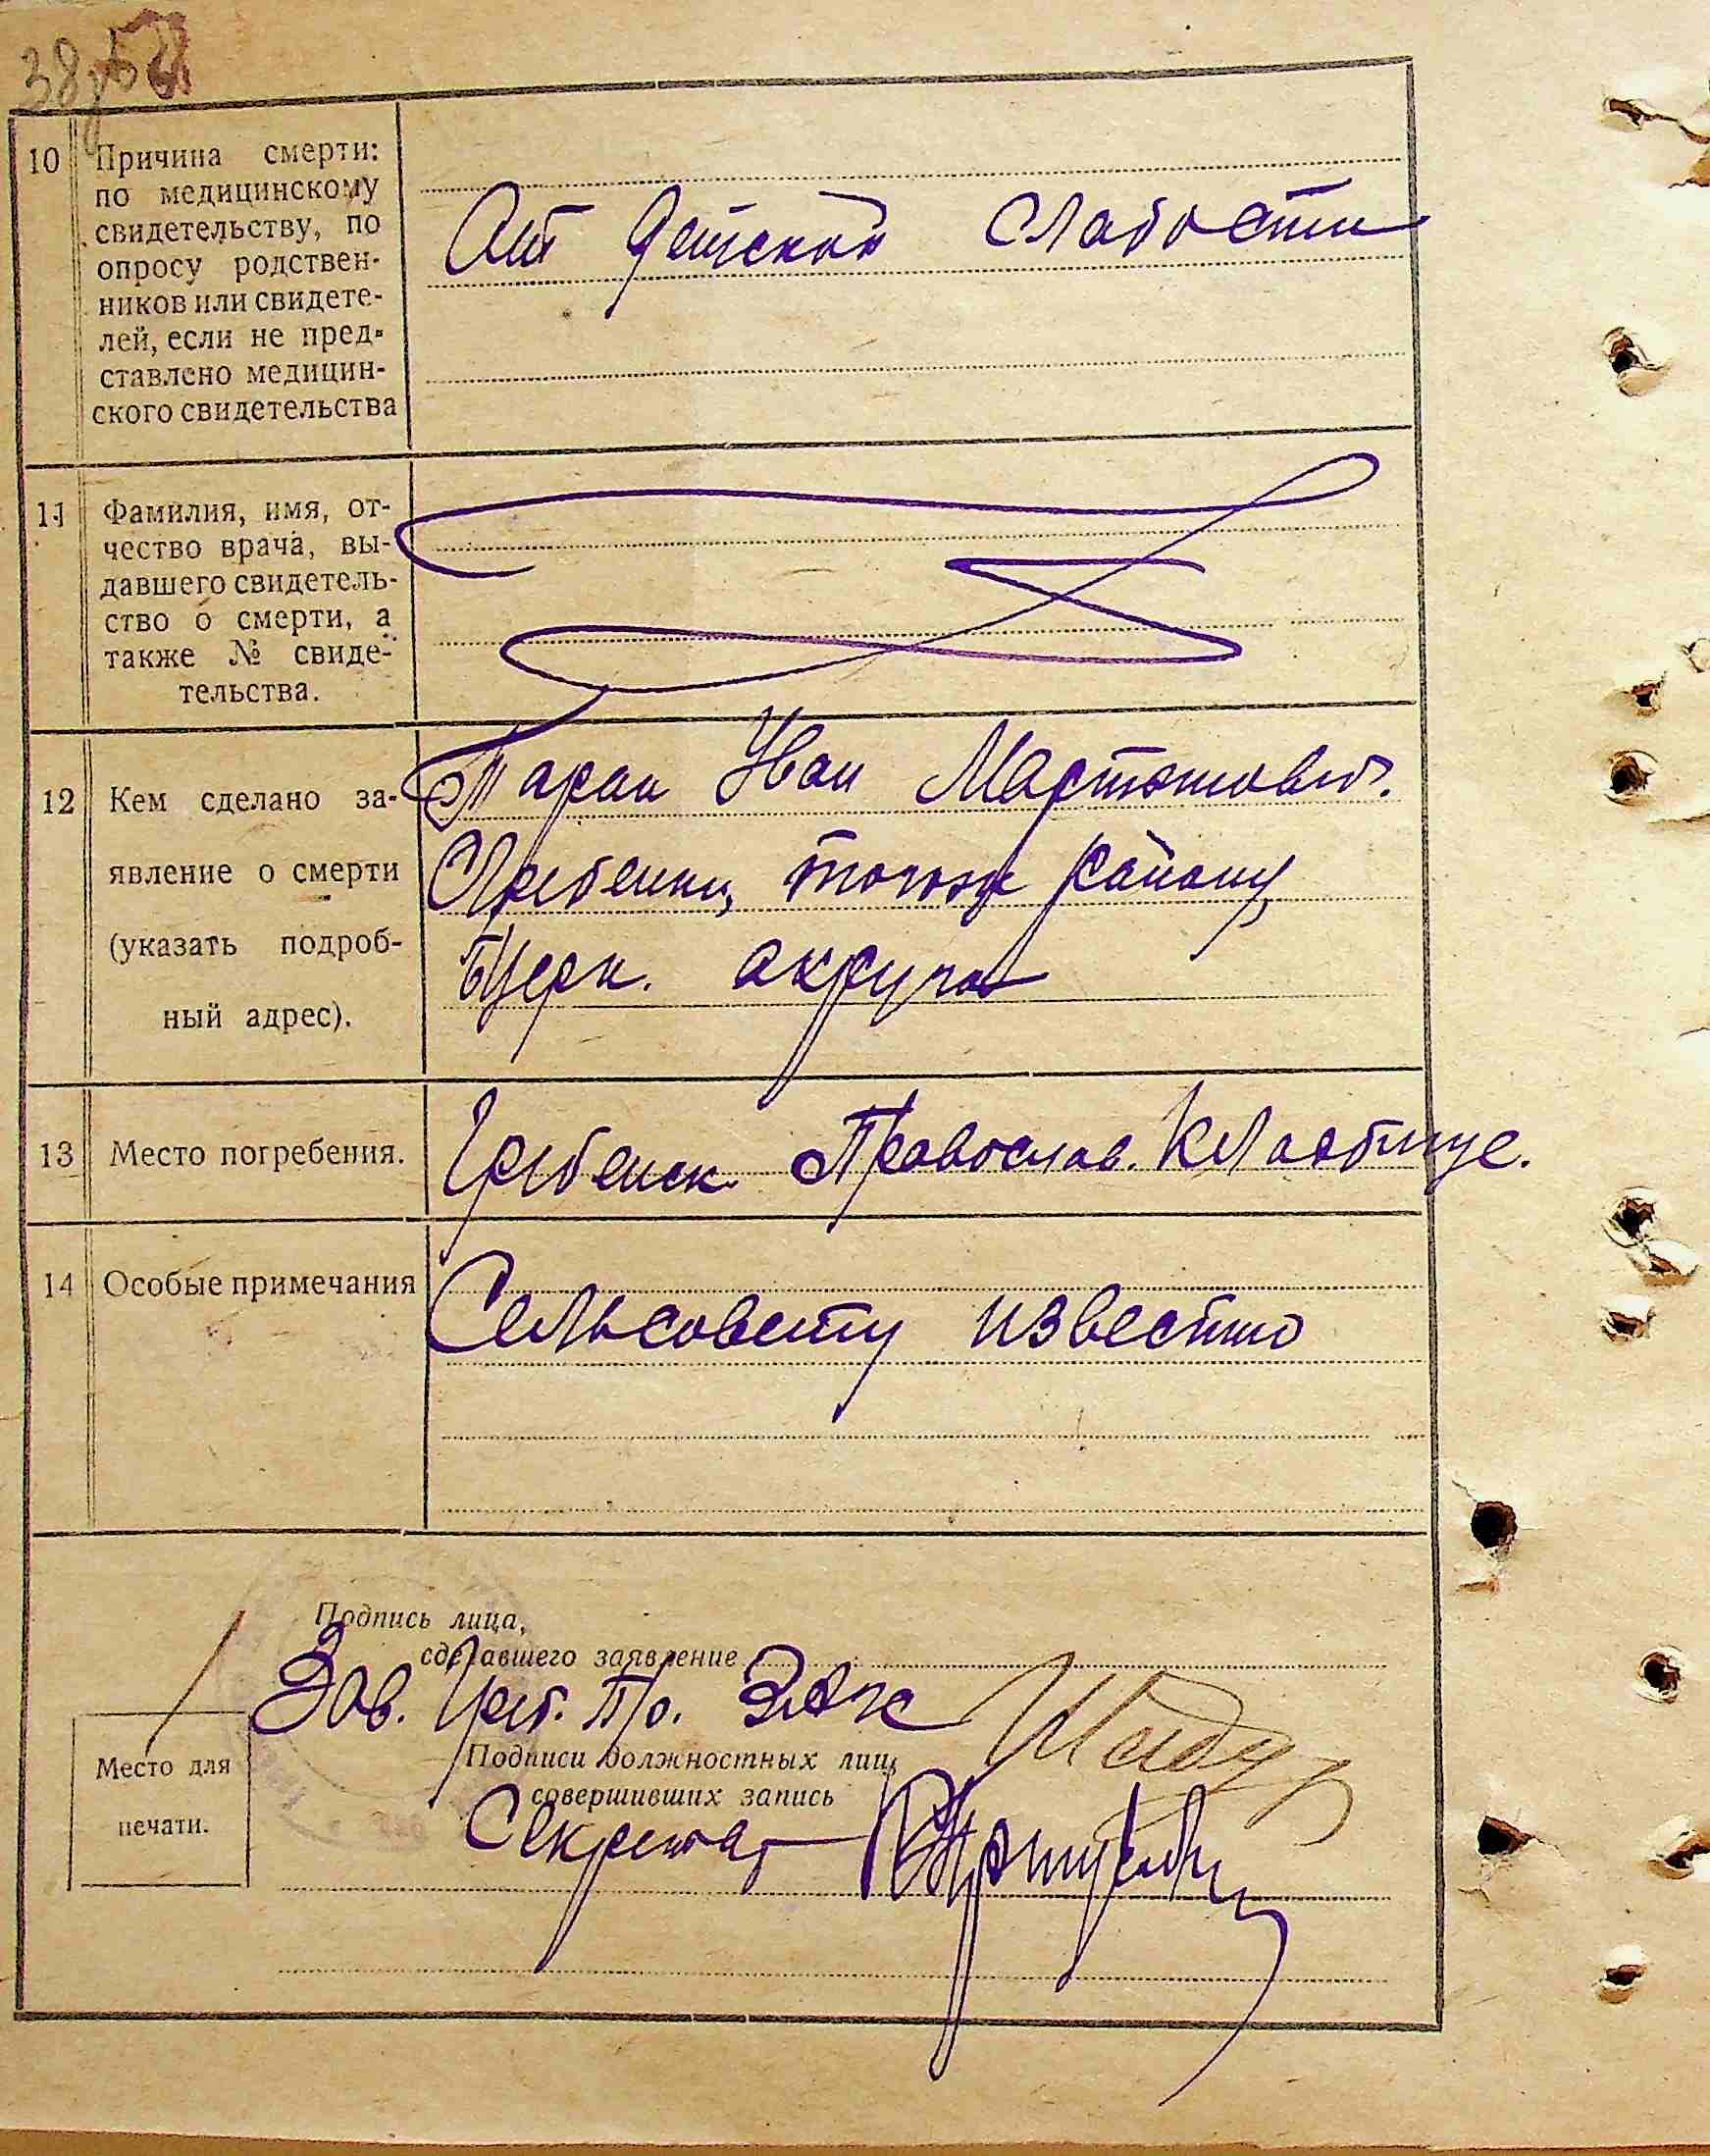 38
10 Причина смерти:
по медицинскому
свидетельству, по
опросу родствен-
ников или свидете-
лей, если не пред-
ставлено медицин-
ского свидетельства
От детской слабости
11 Фамилия, имя, от-
чество врача, вы-
давшего свидетель-
ство о смерти, а
также № свиде-
тельства.
12 Кем сделано за-
явление о смерти
(указать подроб-
ный адрес).
Таран Иван Мартынович.
С Гребенки, того же району
БЦерк. округа
13 Место погребения.
Гребенск. Православ. Кладбище.
14 Особые примечания
Сельсовету известно
Подпись лица,
сделавшего заявление
Зав. Греб. Пр. Загс
Подписи должностных лиц,
совершивших запись
Секретар
Место для
печати.